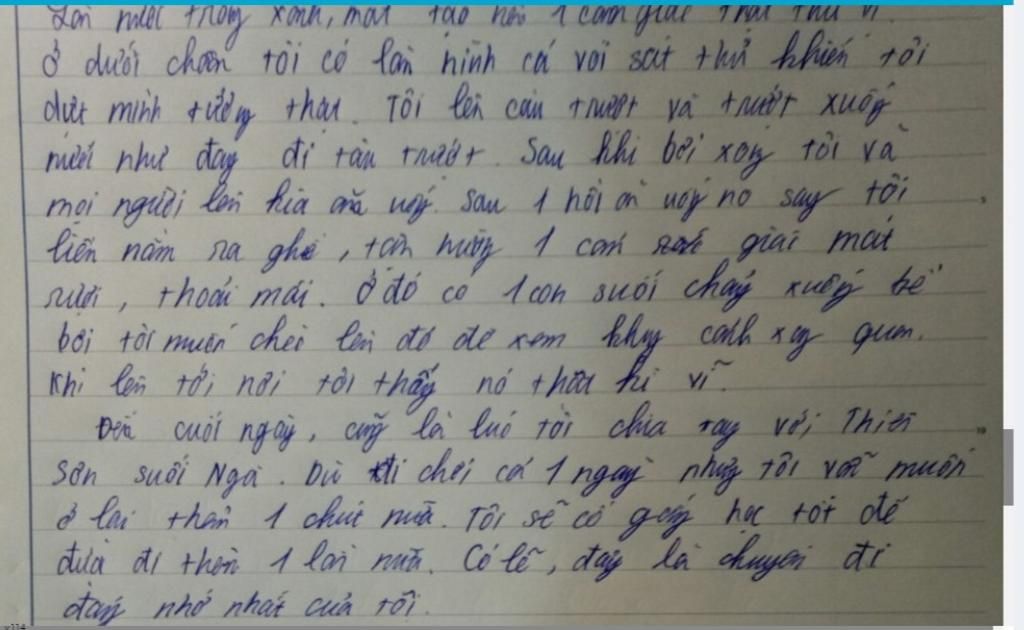 Làn nước trong xanh, mát tạo nên 1 cảm giác thật thú vị.
Ở dưới chân tôi có làn hình cá voi sát thủ khiến tôi
dứt mình tưởng thật. Tôi lên cầu trượt và trượt xuống
nước như đang đi tàu trượt. Sau khi bơi xong tôi và
mọi người lên kia ăn uống. Sau 1 hồi ăn uống no say tôi
liền nằm ra ghế, tận hưởng 1 cảm giác mát
rượi, thoải mái. Ở đó có 1 con suối chảy xuống bể
bơi tôi muốn chèi lên đó để xem khung cảnh xung quan.
Khi lên tới nơi tôi thấy nó thật kì vĩ.
Đến cuối ngày, cũng là lúc tôi chia tay với Thiên
Sơn suối Ngà. Dù đi chơi cả 1 ngày nhưng tôi vẫn muốn
ở lại thêm 1 chút nữa. Tôi sẽ cố gắng học tốt để
được đi thêm 1 lần nữa. Có lẽ, đây là chuyến đi
đáng nhớ nhất của tôi.
x114